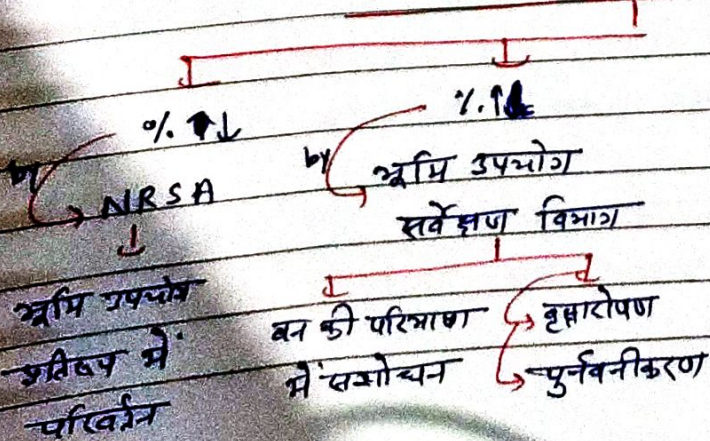 %. ↑↓
%. ↑↓
by
NRSA
भूमि उपयोग
प्रतिरूप में
परिवर्तन
by
भूमि उपयोग
सर्वेक्षण विभाग
वन की परिभाषा
में संशोधन
वृक्षारोपण
पुर्नवनीकरण